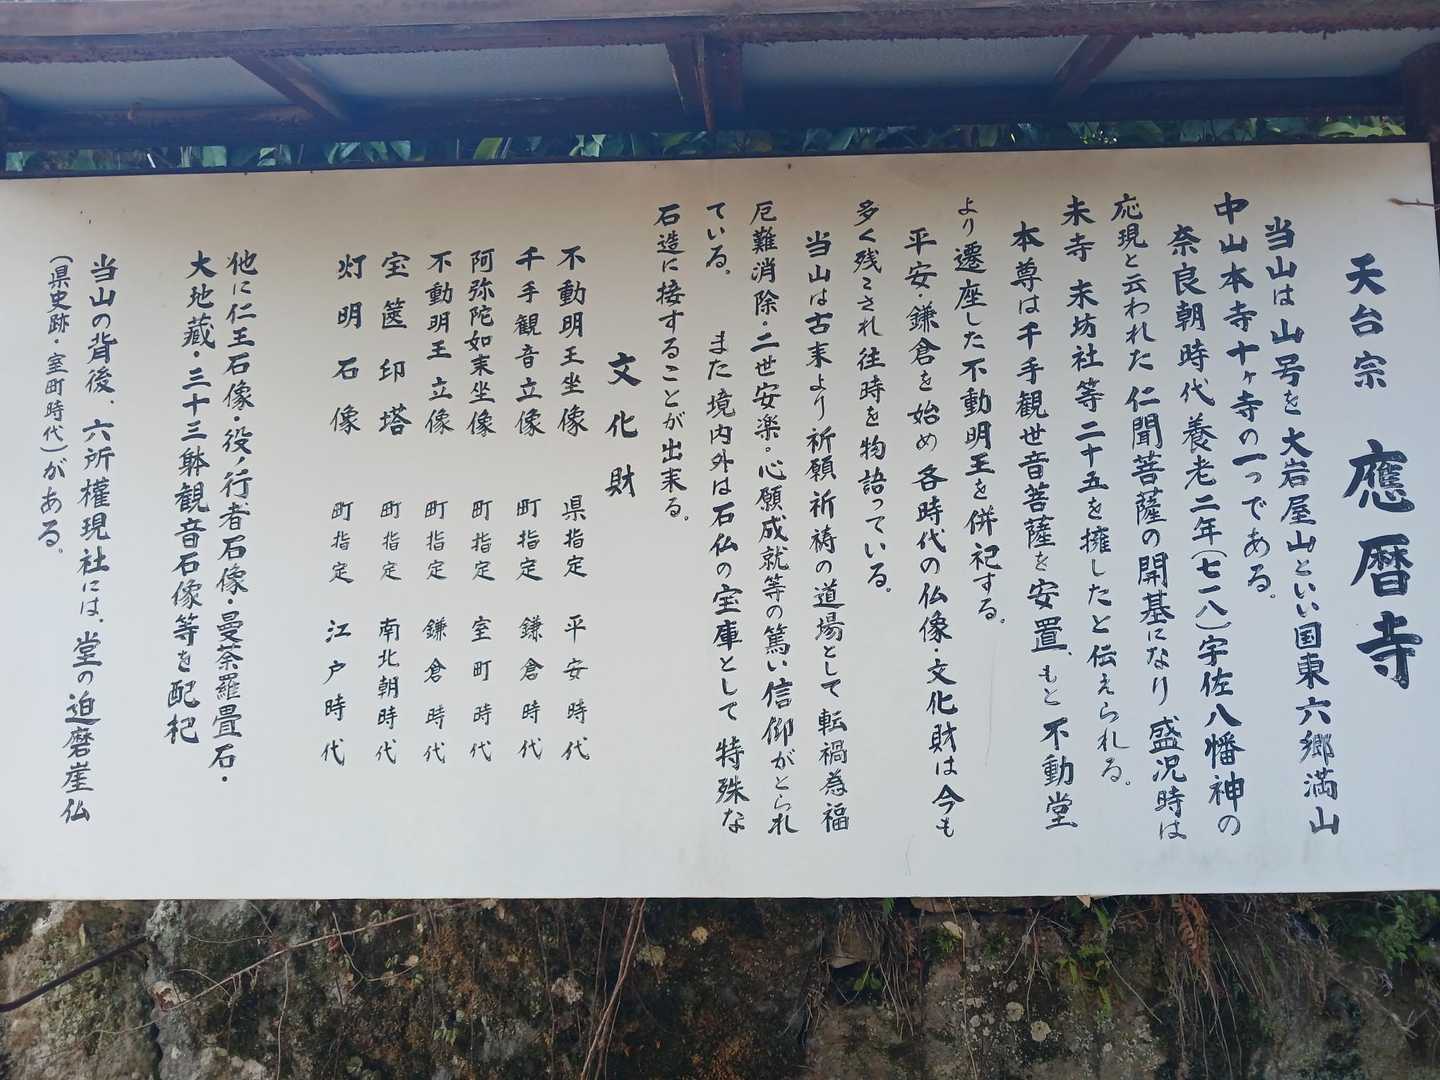 天台宗 應暦寺
当山は山号を大岩屋山といい国東六郷満山
中山本寺十ヶ寺の一つである。
奈良朝時代養老二年(七一八)宇佐八幡神の
応現と云われた仁聞菩薩の開基になり盛況時は
末寺末坊社等二十五を擁したと伝えられる。
本尊は千手観世音菩薩を安置、もと不動堂
より遷座した不動明王を併祀する。
平安・鎌倉を始め各時代の仏像・文化財は今も
多く残こされ往時を物語っている。
当山は古来より祈願祈祷の道場として転禍為福
厄難消除・二世安楽・心願成就等の篤い信仰がとられ
ている。また境内外は石仏の宝庫として特殊な
石造に接することが出来る。
文化財
不動明王坐像 県指定 平安時代
千手観音立像 町指定 鎌倉時代
阿弥陀如来坐像 町指定 室町時代
不動明王立像 町指定 鎌倉時代
宝篋印塔 町指定 南北朝時代
灯明石像 町指定 江戸時代
他に仁王石像・役ノ行者石像・曼荼羅畳石・
大地蔵・三十三躰観音石像等を配杞
当山の背後、六所權現社には、堂の迫磨崖仏
(県史跡・室町時代)がある。